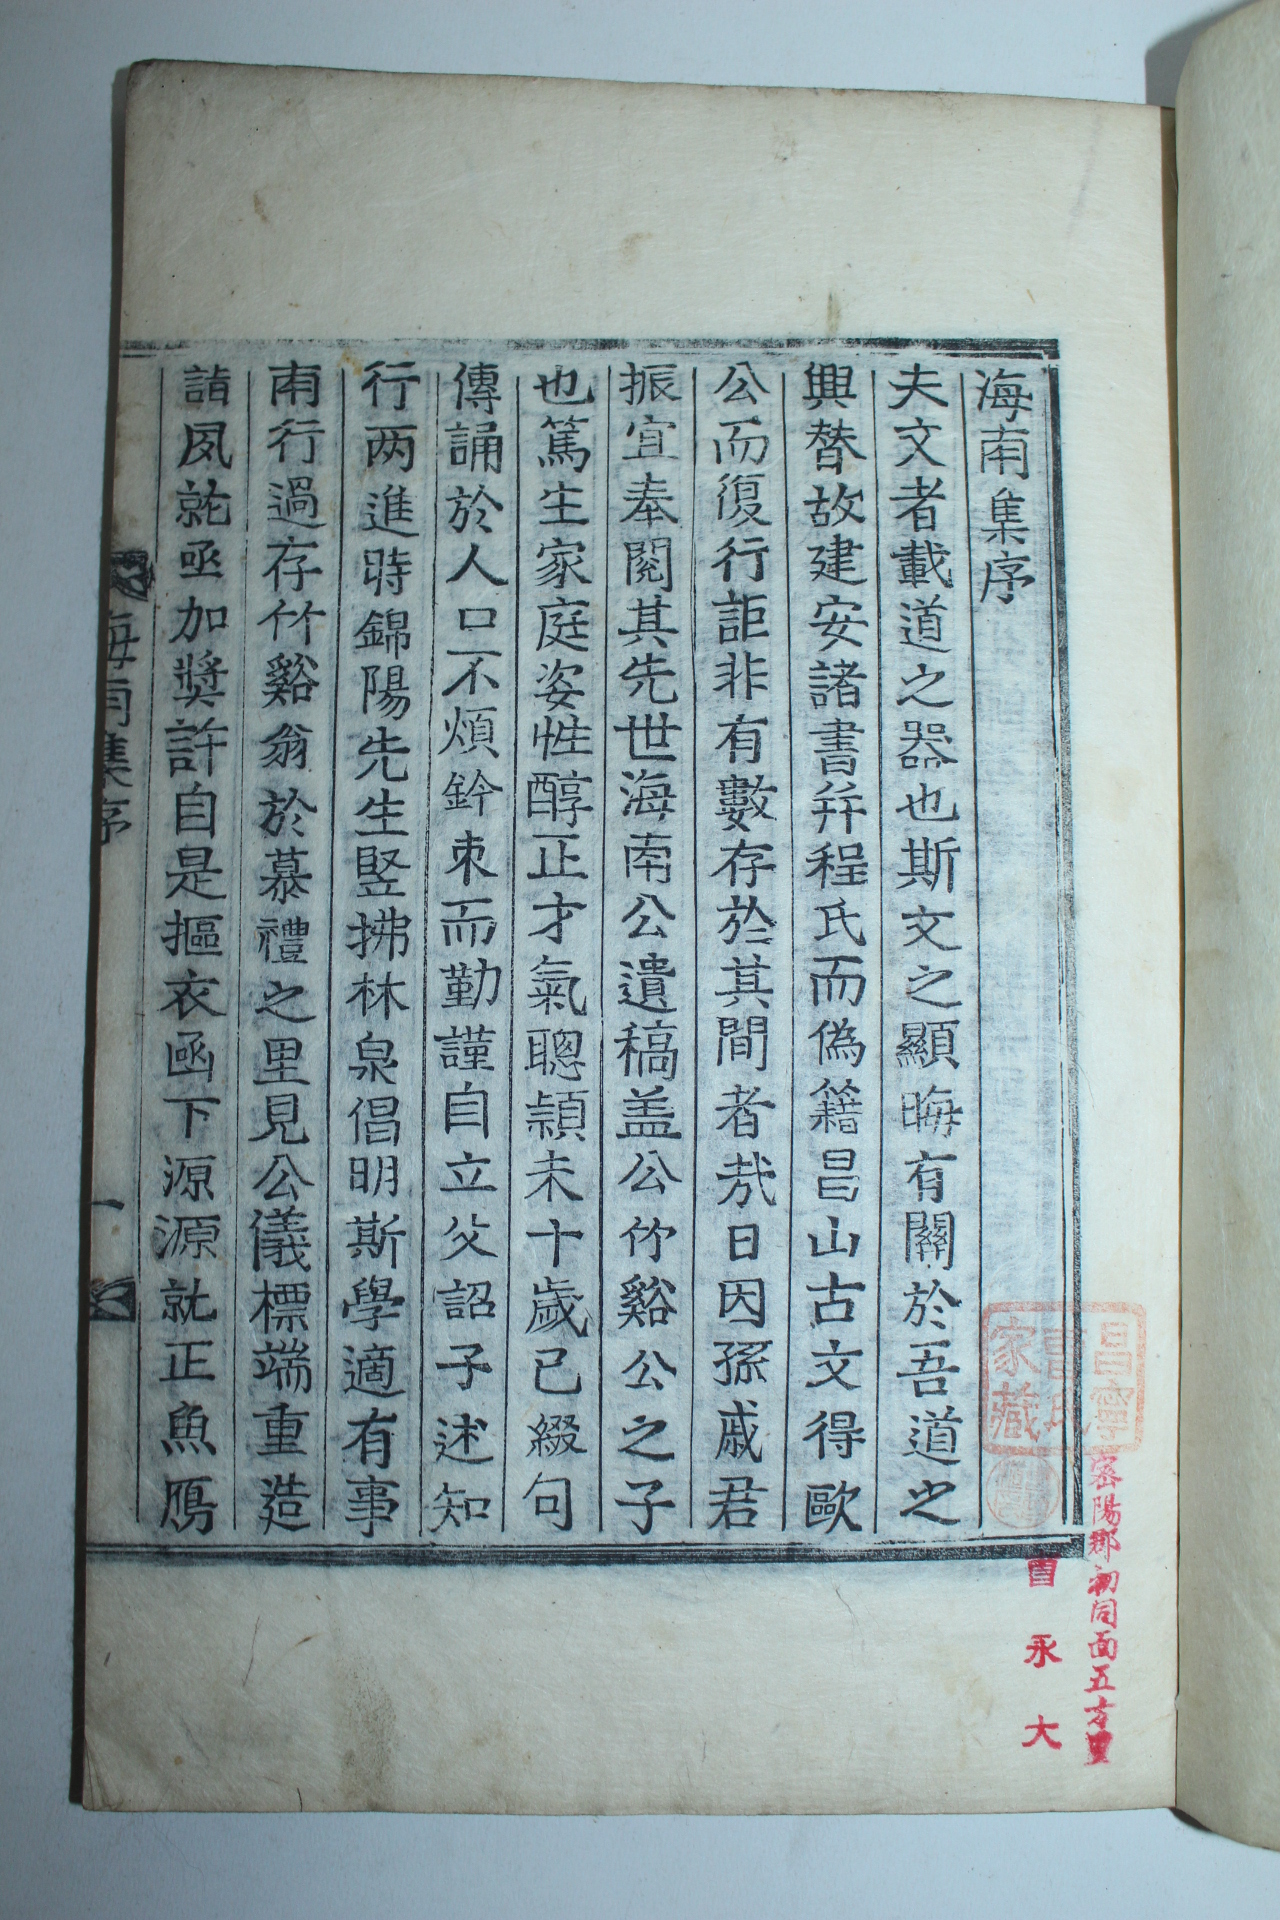 海南集序
夫文者載道之器也斯文之顯晦有關於吾道之
興替故建安諸書并程氏而偽籍昌山古文得歐
公而復行詎非有數存於其間者哉日因孫戚君
振宜奉閱其先世海南公遺稿盖公竹谿公之子
也篤生家庭姿性醇正才氣聰穎未十歲已綴句
傳誦於人口不煩鈐束而勤謹自立父詔子述知
行两進時錦陽先生竪拂林泉倡明斯學適有事
南行過存竹谿翁於慕禮之里見公儀標端重造
詣夙就亟加奬許自是摳衣函下源源就正魚鴈
海南集序
一
昌寧
曺氏
家藏
密陽郡初同面五方里
曺永大